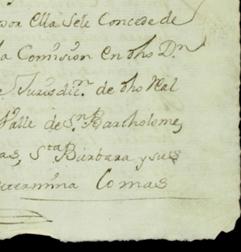 por ella sele Concede de
la Comision en dho Dn
Jurisdicn. de dho Real
Valle de Sn Bartholome,
as, Sta Barbara y sus
Comas